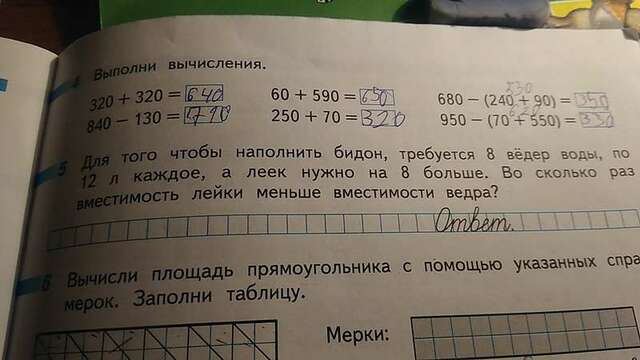 4 Выполни вычисления.
320 + 320 = 640 60 + 590 = 650 680 − (240 + 90) = 350
840 − 130 = 710 250 + 70 = 320 950 − (70 + 550) = 330
5 Для того чтобы наполнить бидон, требуется 8 вёдер воды, по
12 л каждое, а леек нужно на 8 больше. Во сколько раз
вместимость лейки меньше вместимости ведра?
Ответ.
6 Вычисли площадь прямоугольника с помощью указанных спра
мерок. Заполни таблицу.
Мерки: